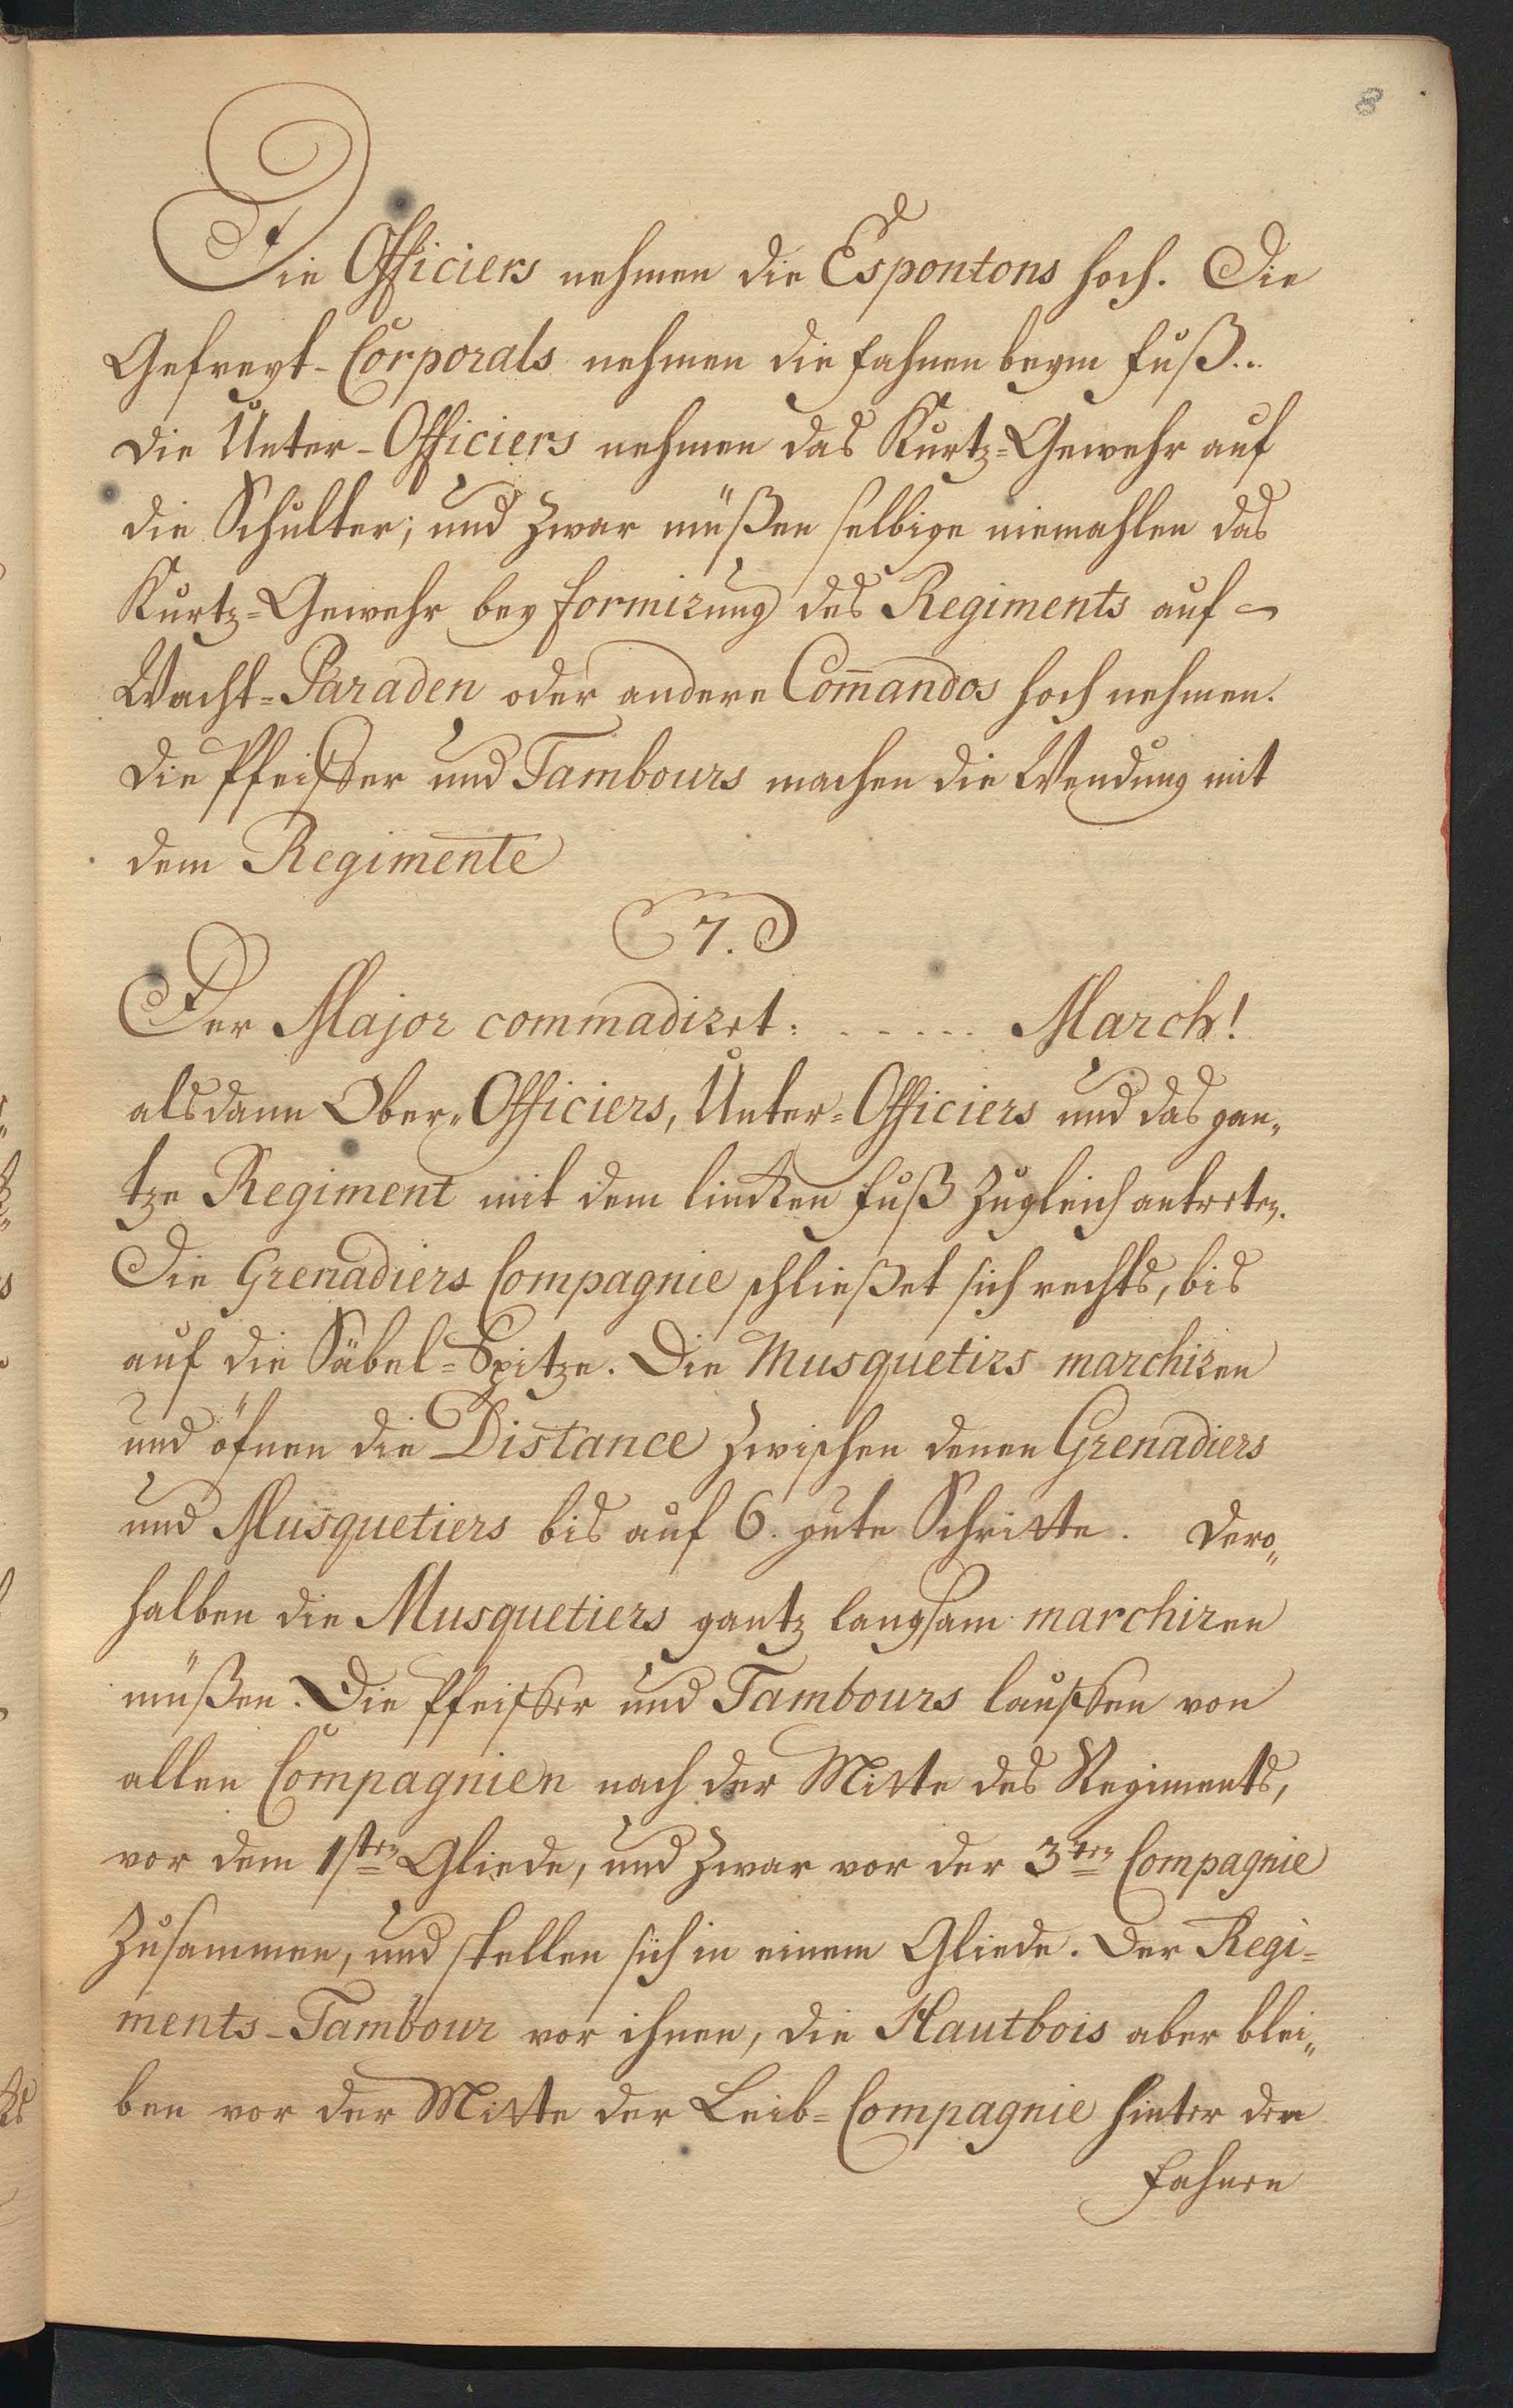 8
Die Officiers nehmen die Espontons hoch. Die
Gefreyt-Corporals nehmen die Fahnen beym Fuß..
die Unter-Officiers nehmen das Kurtz=Gewehr auf
die Schulter; und zwar müßen selbige niemahlen das
Kurtz=Gewehr bey formirung des Regiments auf
Wacht=Paraden oder andere Com̅andos hoch nehmen.
die Pfeiffer und Tambours machen die Wendung mit
dem Regimente
7.
Der Major commadiret: . - - - - . March!
alsdann Ober„Officiers, Unter=Officiers und das gan„
tze Regiment mit dem lincken Fuß zugleich antreten.
Die Grenadiers Compagnie schließet sich rechts, bis
auf die Säbel=Spitze. Die Musquetirs marchiren
und öfnen die Distance zwischen denen Grenadiers
und Musquetiers bis auf 6. gute Schritte. Dero„
halben die Musquetiers gantz langsam marchiren
müßen. Die Pfeiffer und Tambours lauffen von
allen Compagnien nach der Mitte des Regiments,
vor dem 1sten Gliede, und zwar vor der 3ten Compagnie
zusammen, und stellen sich in einem Gliede. Der Regi=
ments-Tambour vor ihnen, die Hautbois aber blei„
ben vor der Mitte der Leib=Compagnie hinter den
Fahnen